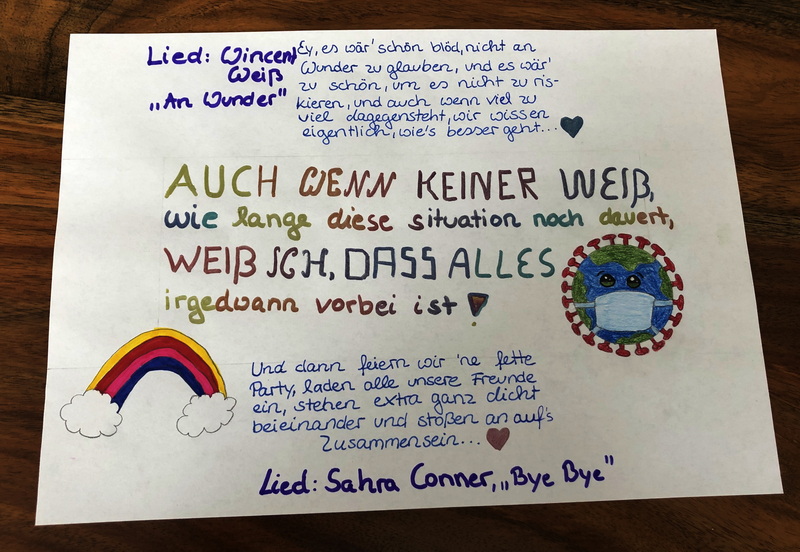 Lied: Wincent
Weiß
„An Wunder"
Ey, es wär' schön blöd, nicht an
Wunder zu glauben, und es wär'
zu schön, um es nicht zu ris-
kieren, und auch wenn viel zu
viel dagegensteht, wir wissen
eigentlich, wie's besser geht...
AUCH WENN KEINER WEIß,
wie lange diese situation noch dauert,
WEIß ICH, DASS ALLES
irgedwann vorbei ist !
Und dann feiern wir 'ne fette
Party, laden alle unsere Freunde
ein, stehen extra ganz dicht
beieinander und stoßen an auf's
Zusammensein...
Lied: Sahra Conner, „Bye Bye"